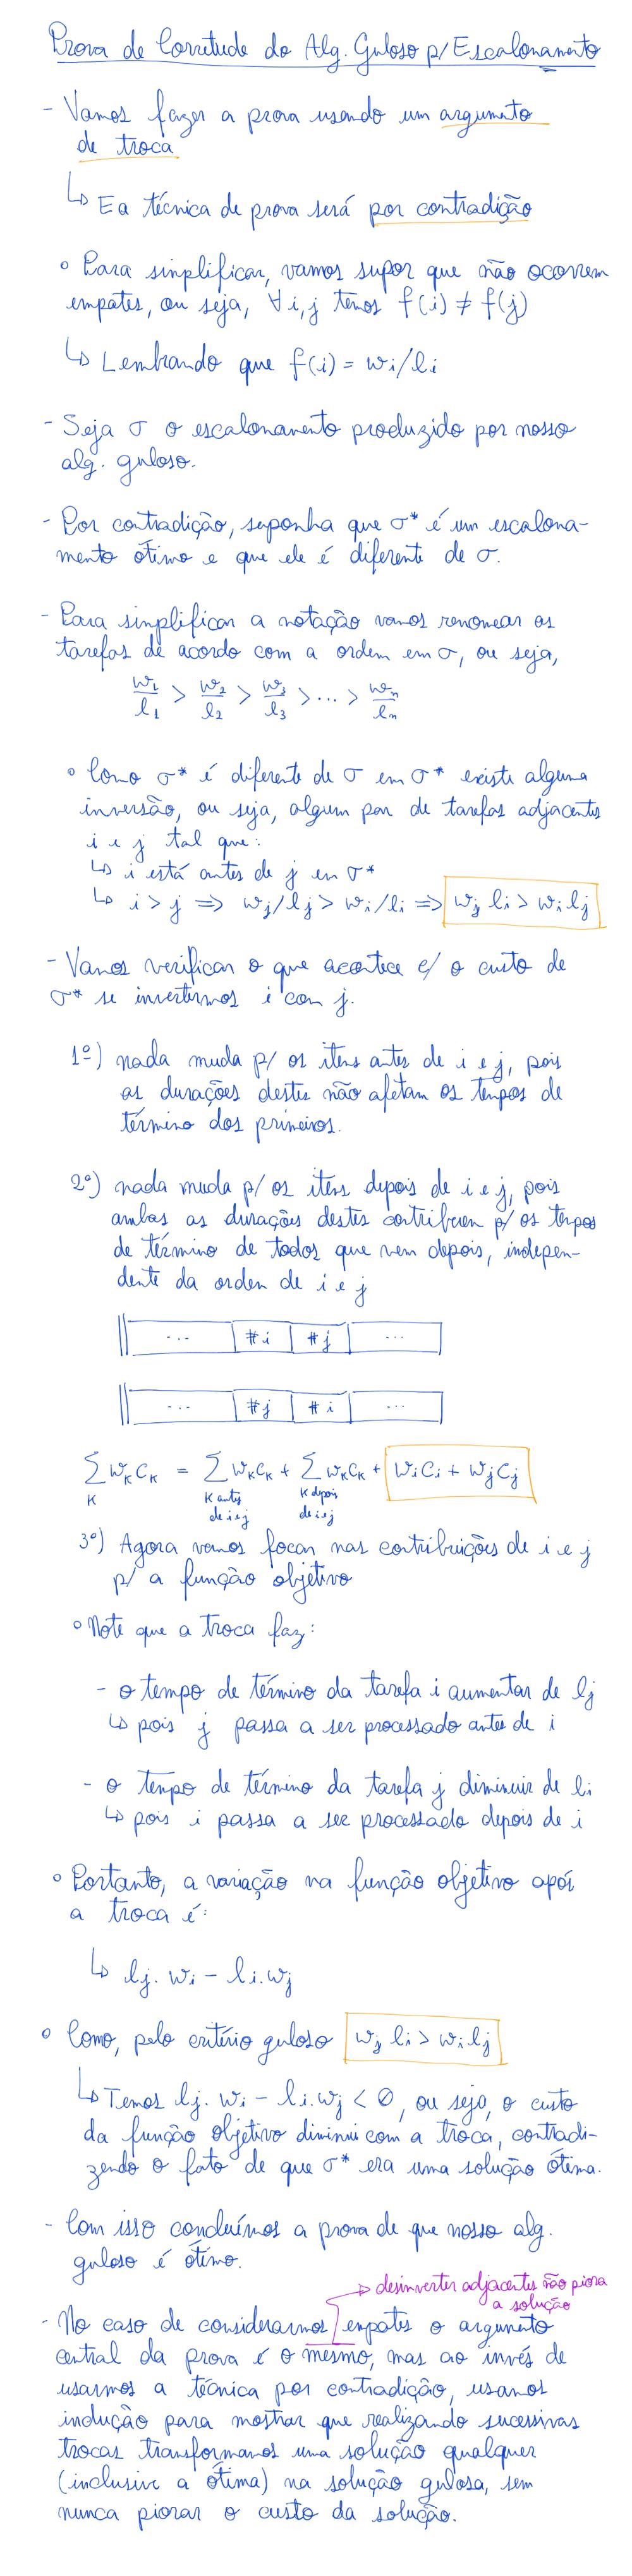 Prova de Corretude do Alg. Guloso p/ Escalonamento
- Vamos fazer a prova usando um argumento
de troca
↳ E a técnica de prova será por contradição
° Para simplificar, vamos supor que não ocorrem
empates, ou seja, ∀ i,j temos f(i) ≠ f(j)
↳ Lembrando que f(i) = wi/li
- Seja σ o escalonamento produzido por nosso
alg. guloso.
- Por contradição, suponha que σ* é um escalona-
mento ótimo e que ele é diferente de σ.
- Para simplificar a notação vamos renomear as
tarefas de acordo com a ordem em σ, ou seja,
w1/l1 > w2/l2 > w3/l3 > ... > wn/ln
° Como σ* é diferente de σ em σ* existe alguma
inversão, ou seja, algum par de tarefas adjacentes
i e j tal que:
↳ i está antes de j em σ*
↳ i > j => wj/lj > wi/li => wj li > wi lj
- Vamos verificar o que acontece c/ o custo de
σ* se invertermos i com j.
1º) nada muda p/ os itens antes de i e j, pois
as durações destes não afetam os tempos de
término dos primeiros.
2º) nada muda p/ os itens depois de i e j, pois
ambas as durações destes contribuem p/ os tempos
de término de todos que vem depois, indepen-
dente da ordem de i e j
... #i #j ...
... #j #i ...
∑ wk ck = ∑ wk ck + ∑ wk ck + wi ci + wj cj
k k antes k depois
de i e j de i e j
3º) Agora vamos focar nas contribuições de i e j
p/ a função objetivo
° Note que a troca faz:
- o tempo de término da tarefa i aumentar de lj
↳ pois j passa a ser processado antes de i
- o tempo de término da tarefa j diminuir de li
↳ pois i passa a ser processado depois de i
° Portanto, a variação na função objetivo após
a troca é:
↳ lj. wi - li. wj
° Como, pelo critério guloso wj li > wi lj
↳ Temos lj. wi - li. wj < 0, ou seja, o custo
da função objetivo diminui com a troca, contradi-
zendo o fato de que σ* era uma solução ótima.
- Com isso concluímos a prova de que nosso alg.
guloso é ótimo.
desinverter adjacentes não piora
a solução
- No caso de considerarmos empates o argumento
central da prova é o mesmo, mas ao invés de
usarmos a técnica por contradição, usamos
indução para mostrar que realizando sucessivas
trocas transformamos uma solução qualquer
(inclusive a ótima) na solução gulosa, sem
nunca piorar o custo da solução.